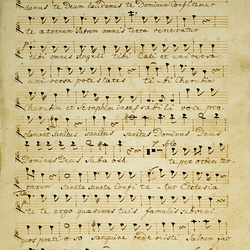 damus te Deum Laudamus te Dominum Confitemur
te aeternum Patrem omnis terra veneratur
tibi omnes Angeli tibi Caeli et universa
universa potestates te tibi Cherubim
Cherubim et Seraphim incessabili voce pro
clamant Sanctus Sanctus Sanctus Dominus Deus
Dominus Deus Sabaoth te per orbem ter
rarum Sancta Sancta Confite tur Ecclesia
te te ergo quaesumus tuis famulis subveni
quos pretioso Sanguine rede misti